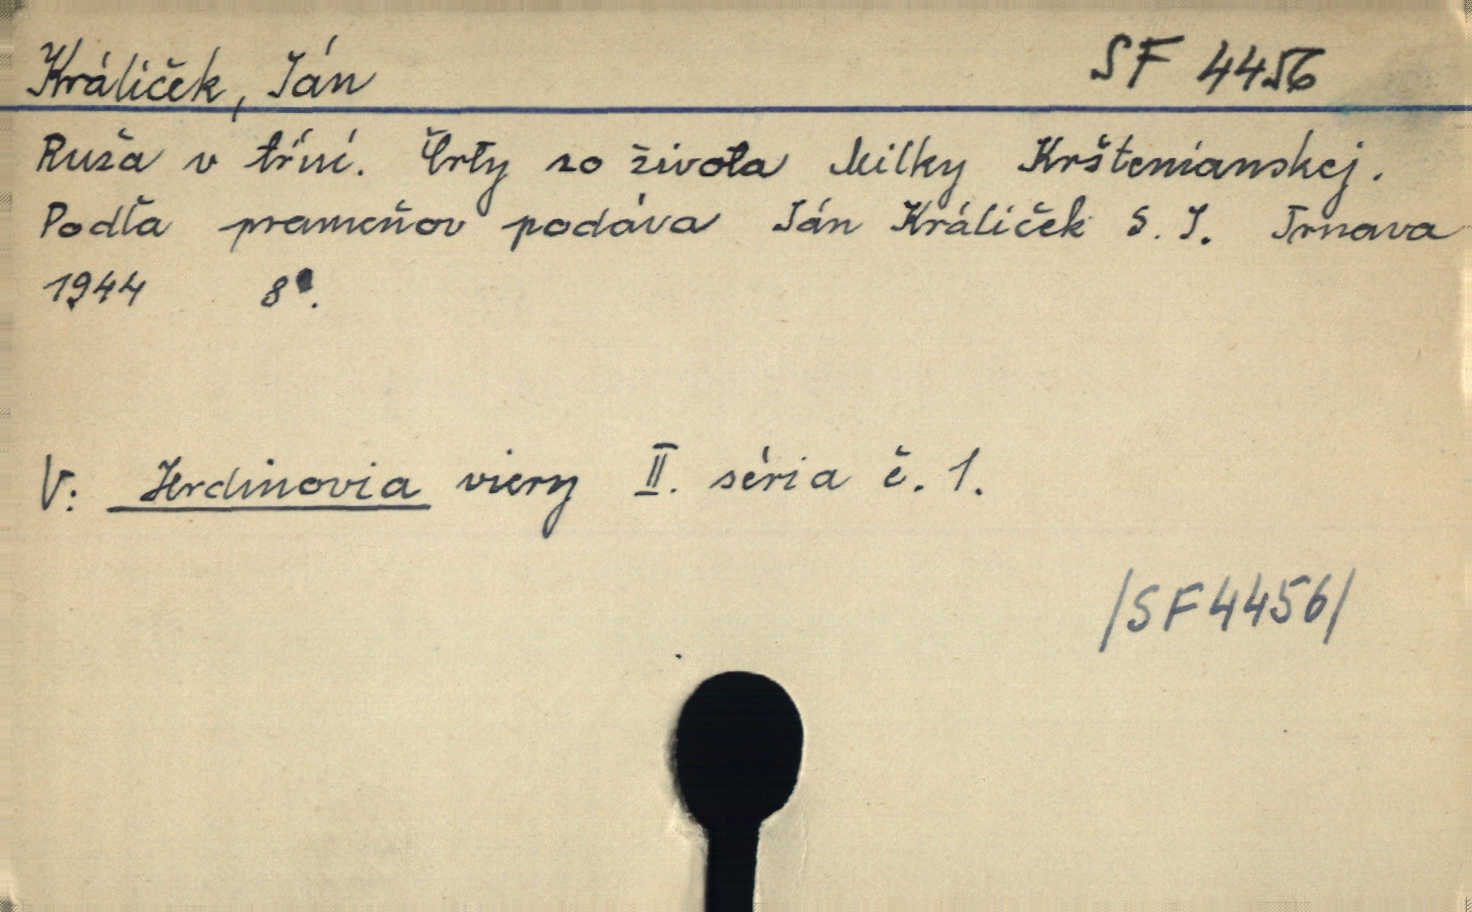 Králiček, Ján SF 4456
Ruža v tŕní. Črty zo života Milky Krštenianskej.
Podľa prameňov podáva Ján Králiček S. J. Trnava
1944 8°.
V: Hrdinovia viery II. séria č. 1.
/SF4456/